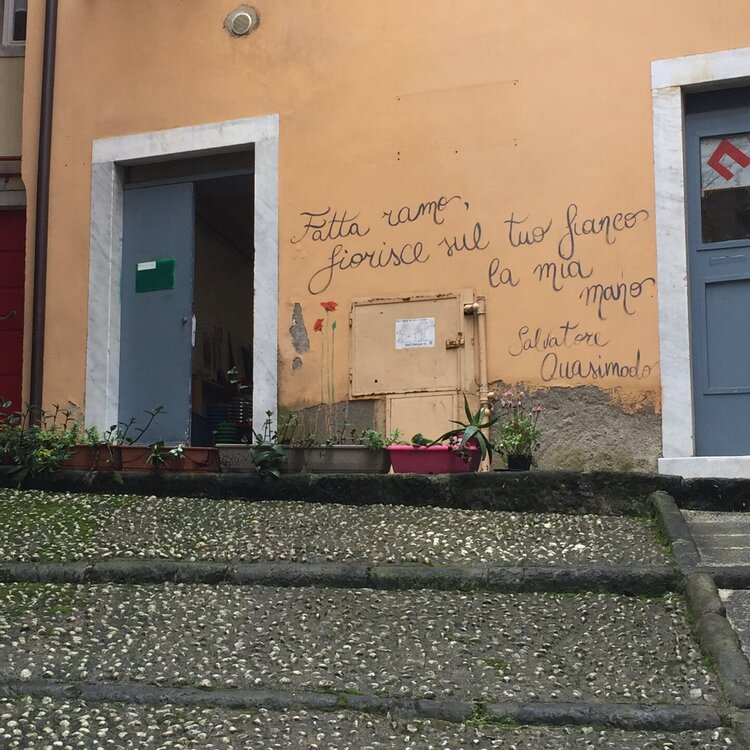 Fatta ramo,
fiorisce sul tuo fianco
la mia
mano.
Salvatore
Quasimodo